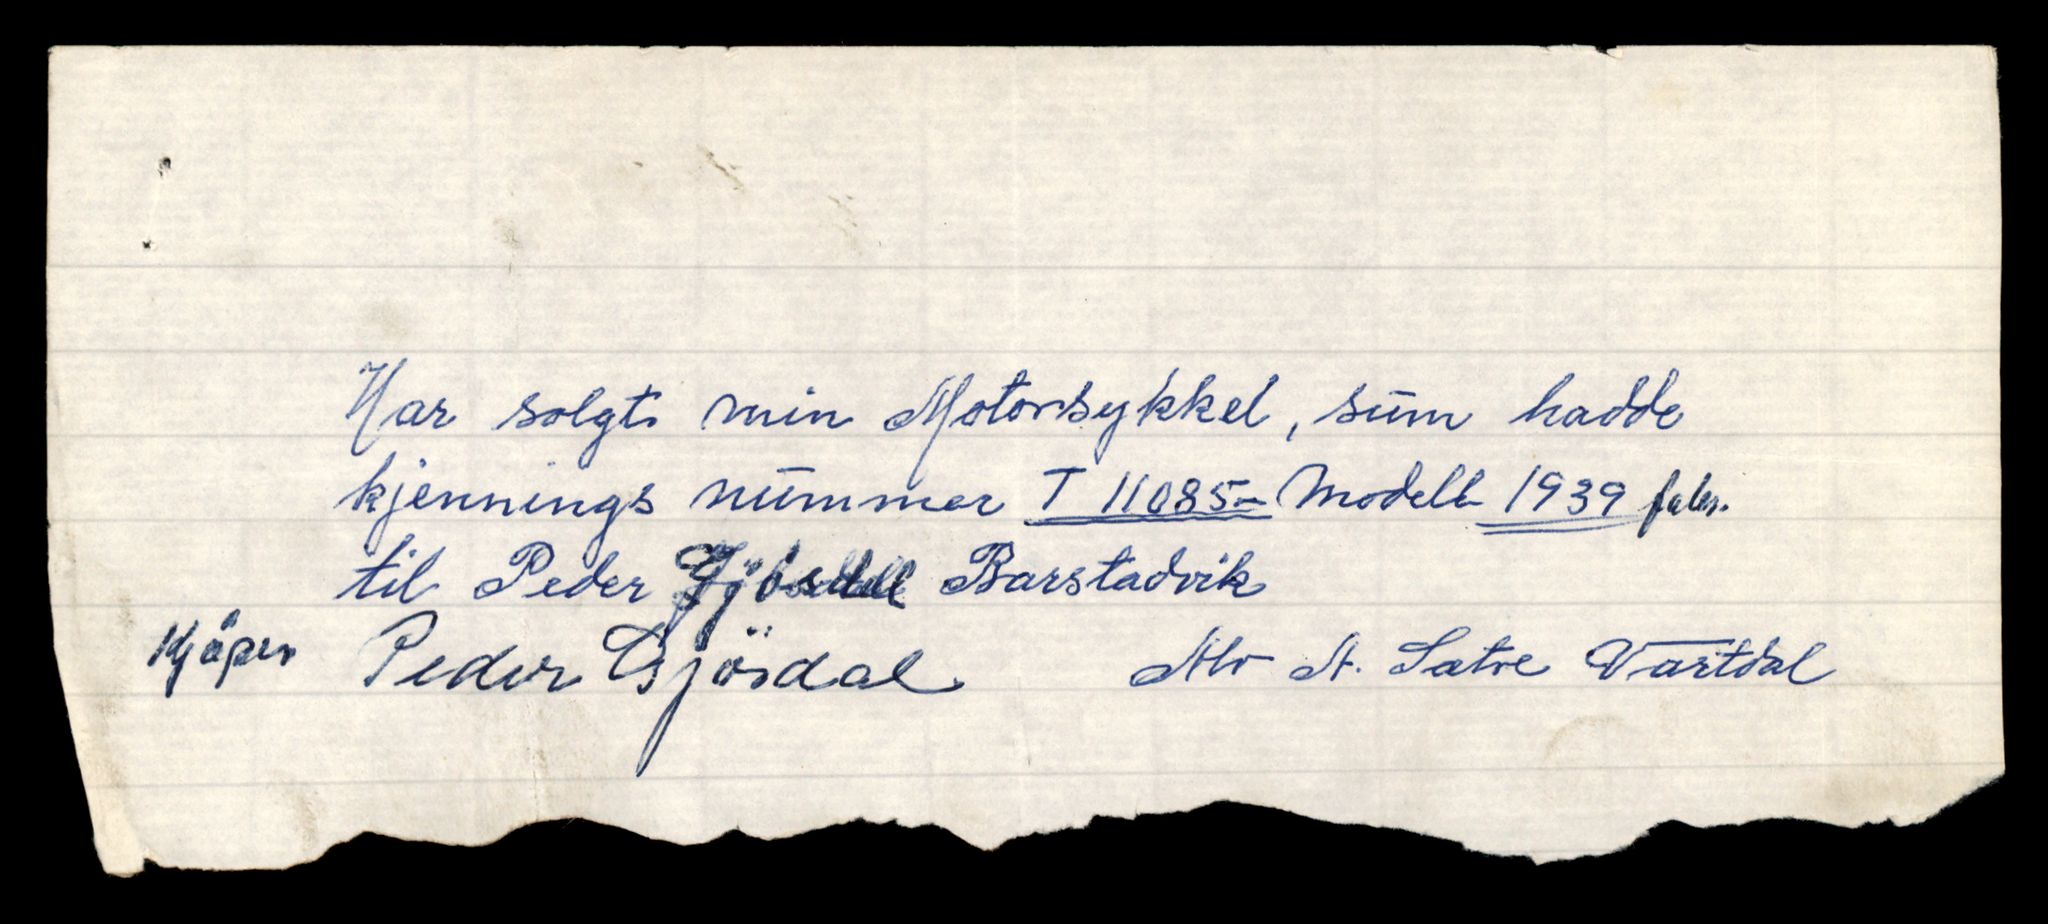 Har solgt min Motorsykkel, sŭm hadde
kjennings nŭmmer T 11085 - Modell 1939
til Peder Barstadvik
Kjöper Peder Gjösdal Alv A. Satre Vartdal